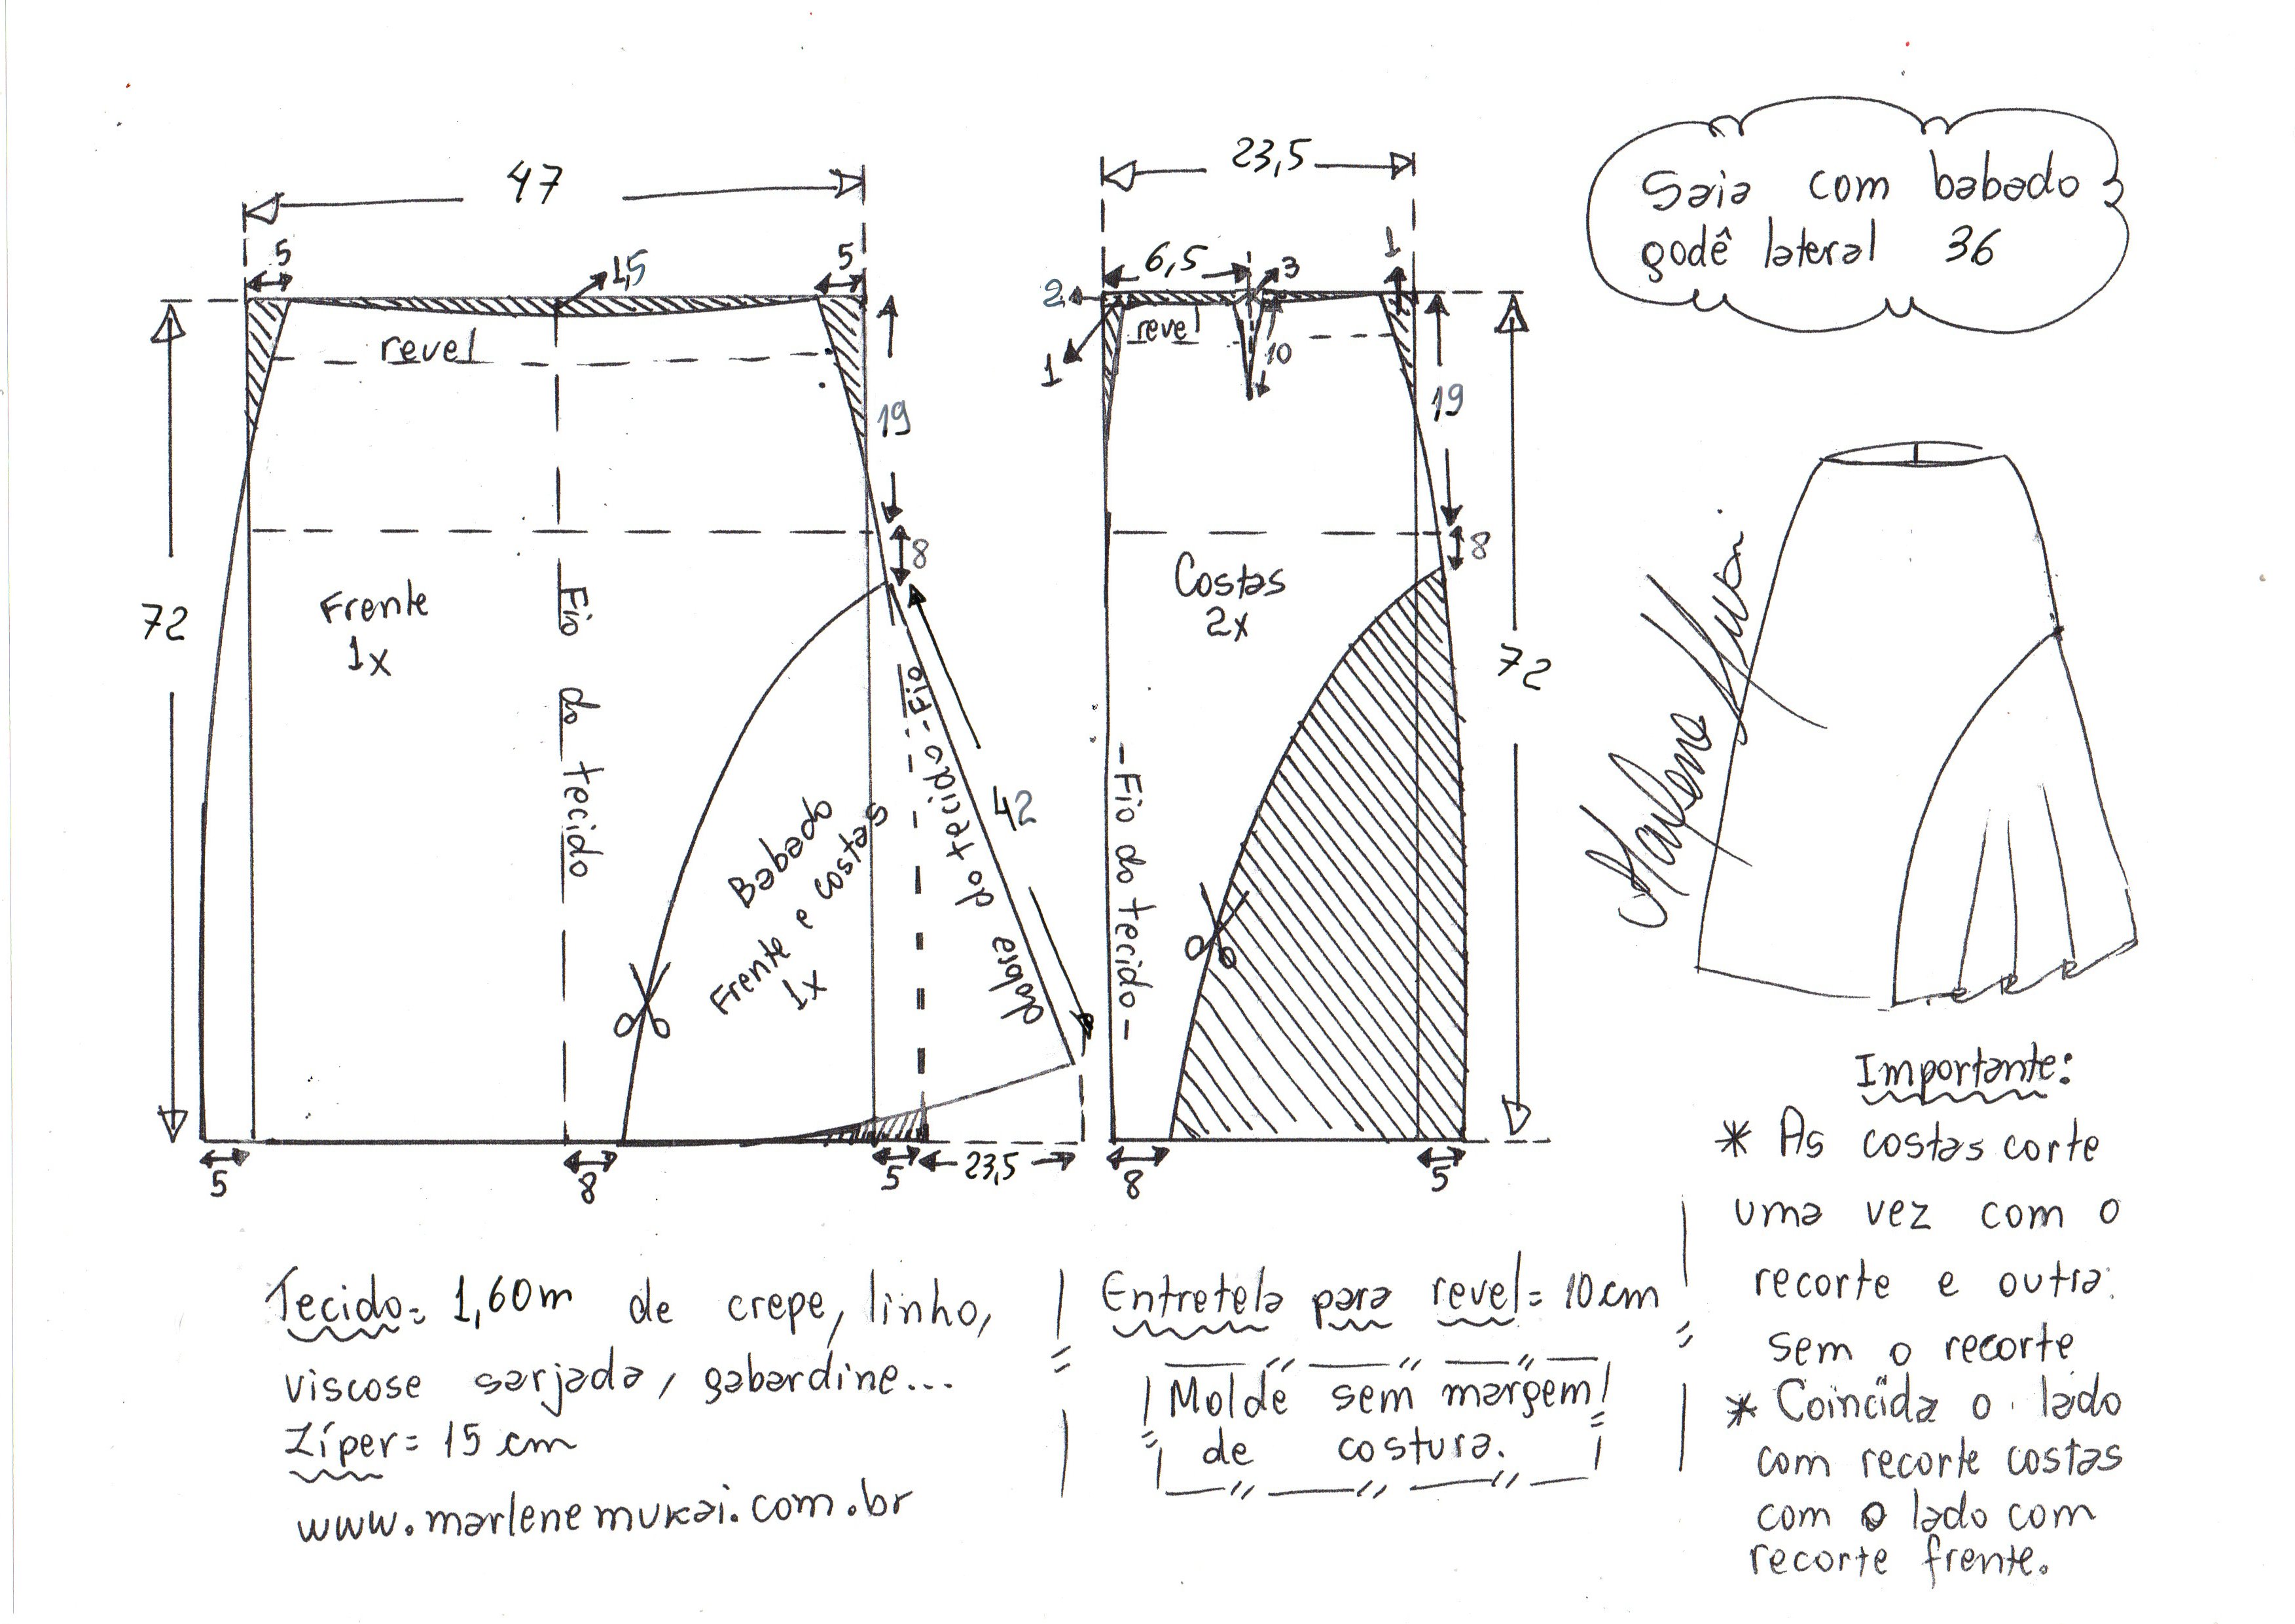 Saia com babado
godê lateral 36
47
5
1,5
5
revel
19
8
72
Frente
1x
Fio do tecido
Babado
Frente e costas
1x
Fio do tecido
dobra
42
5
8
5
23,5
23,5
6,5
3
1
2
1
revel
10
19
8
Costas
2x
72
Fio do tecido
8
5
Marlene Mukai
Importante:
* As costas corte
uma vez com o
recorte e outra
sem o recorte
* Coincida o lado
com recorte costas
com o lado com
recorte frente.
Tecido= 1,60m de crepe, linho,
viscose sarjada, gabardine...
Zíper= 15 cm
www.marlenemukai.com.br
Entretela para revel= 10cm
Molde sem margem
de costura.